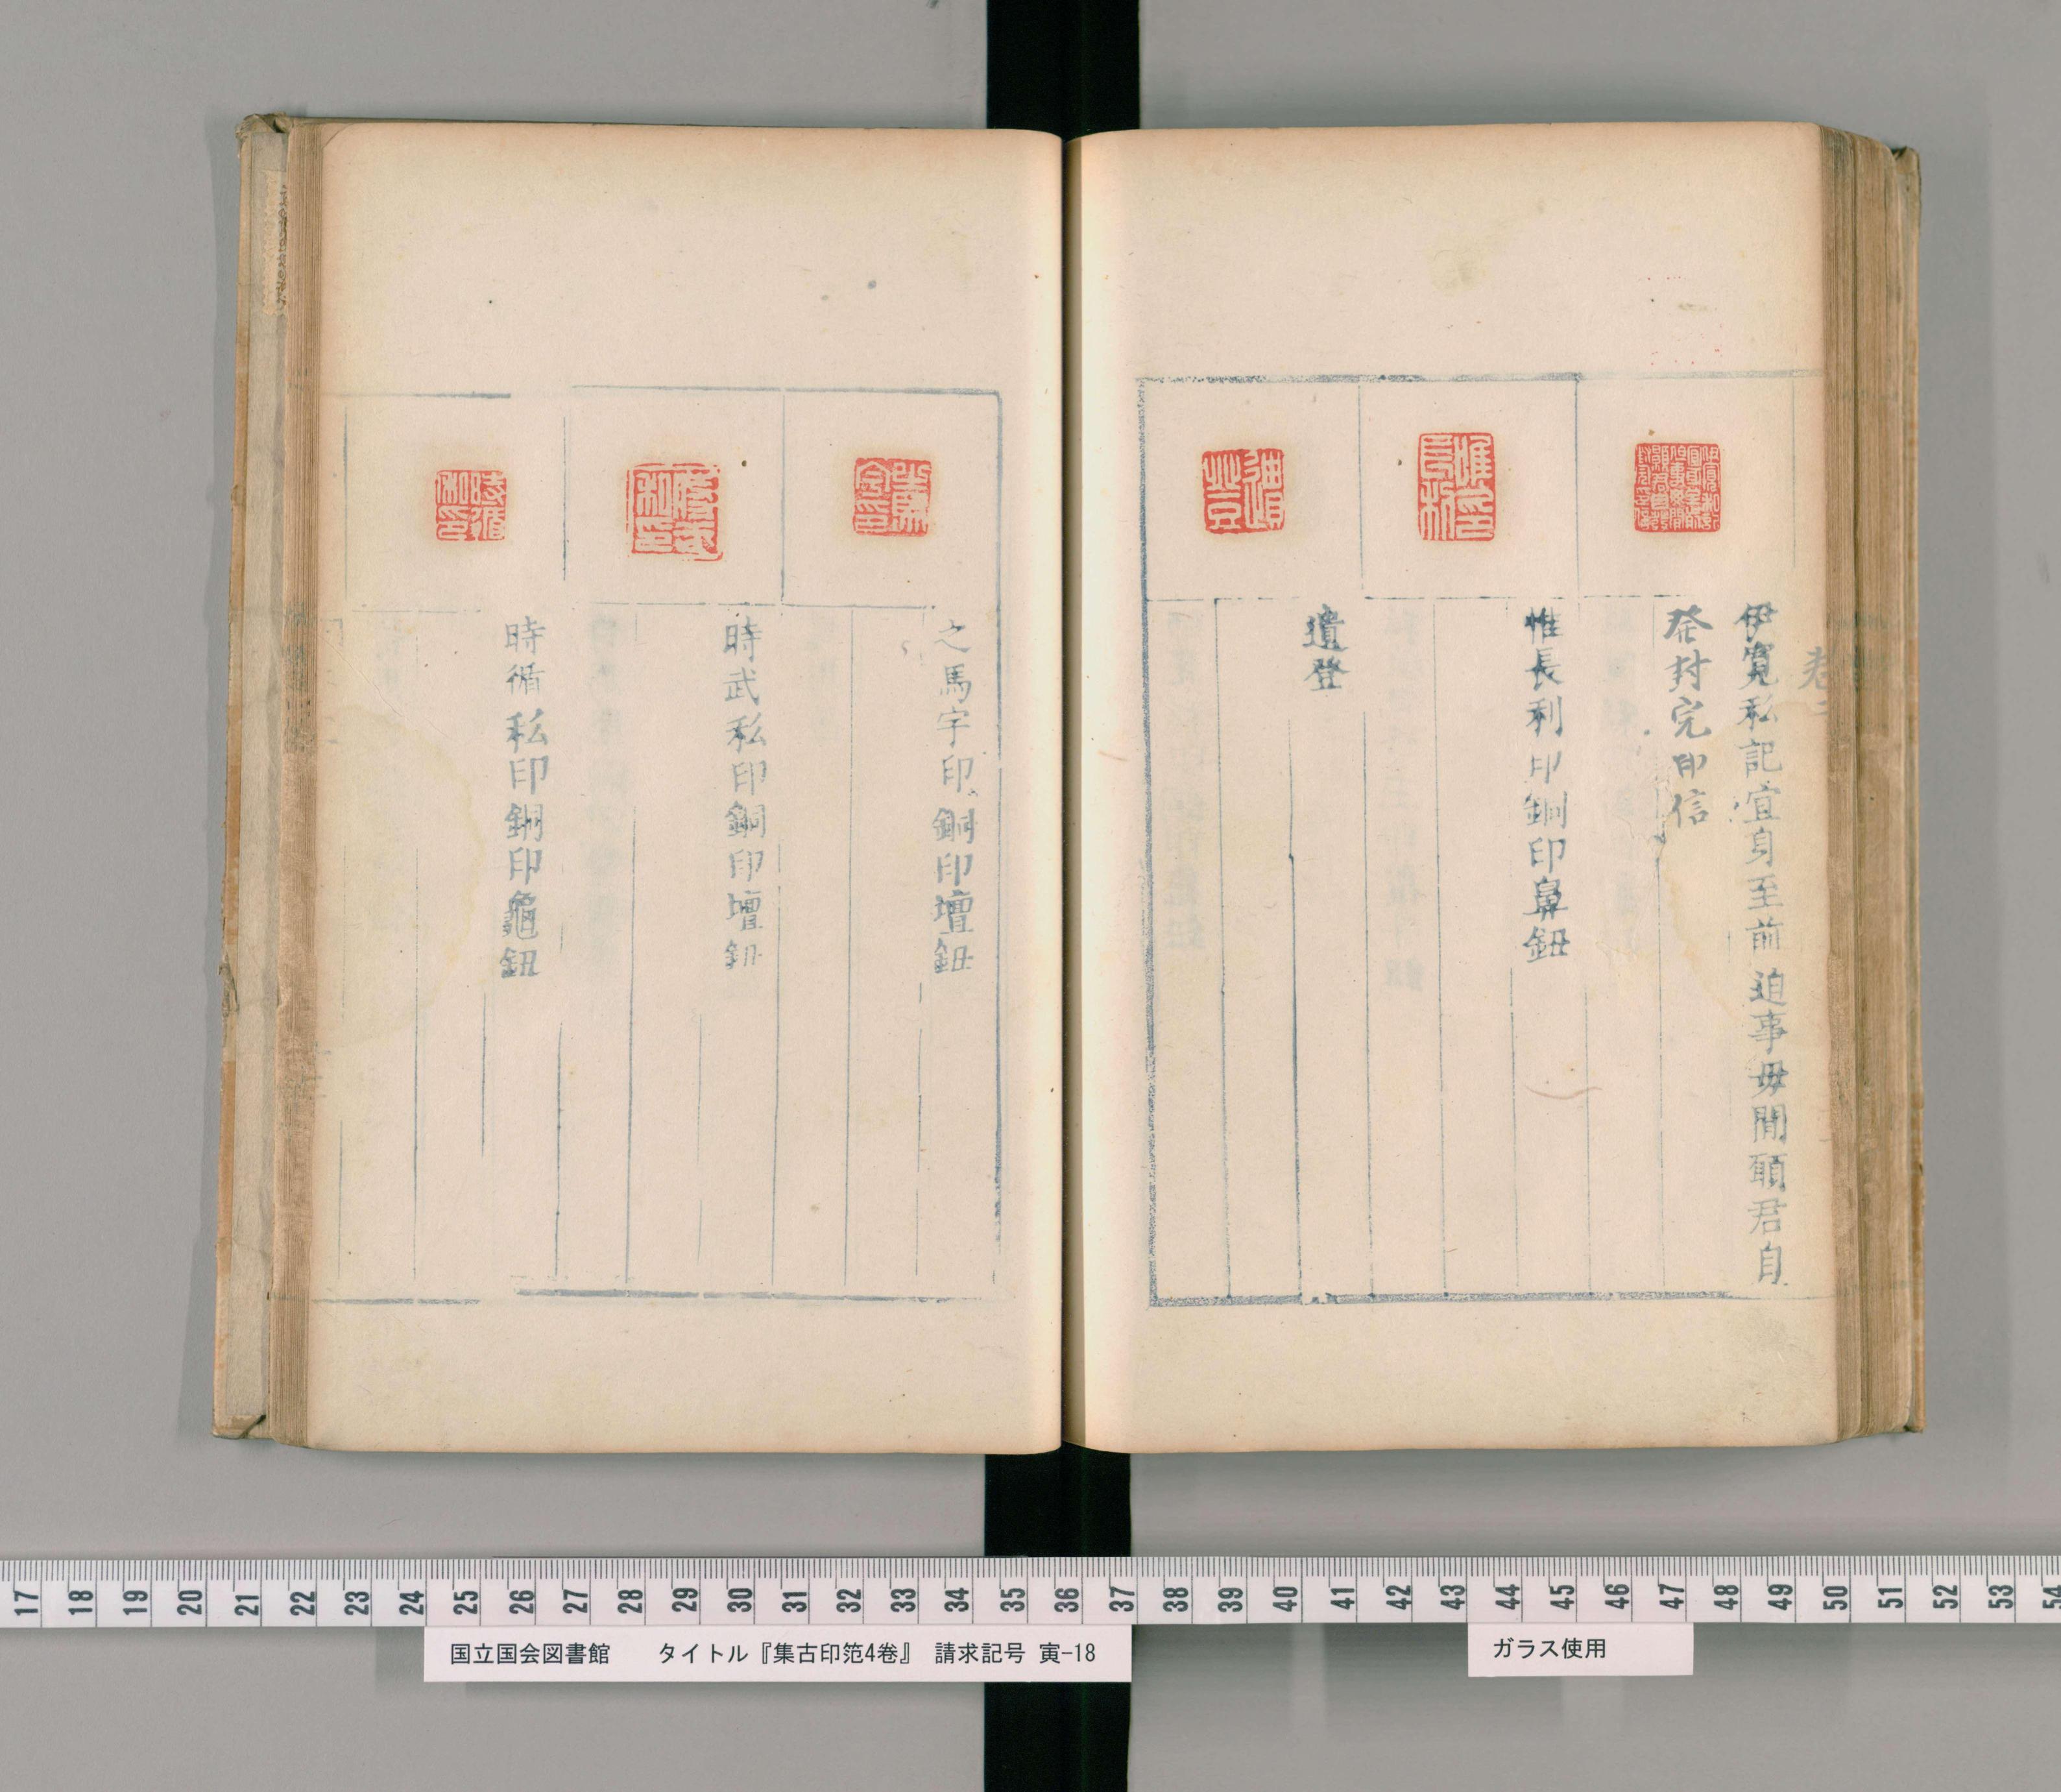 伊寛私記宜身至前迫事毋閒願君自
發封完印信
惟長利印銅印鼻鈕
遺登
之馬宇印銅印壇鈕
時武私印銅印壇鈕
時循私印銅印龜鈕
17 18 19 20 21 22 23 24 25 26 27 28 29 30 31 32 33 34 35 36 37 38 39 40 41 42 43 44 45 46 47 48 49 50 51 52 53 54
国立国会図書館 タイトル『集古印笵4巻』 請求記号 寅-18
ガラス使用